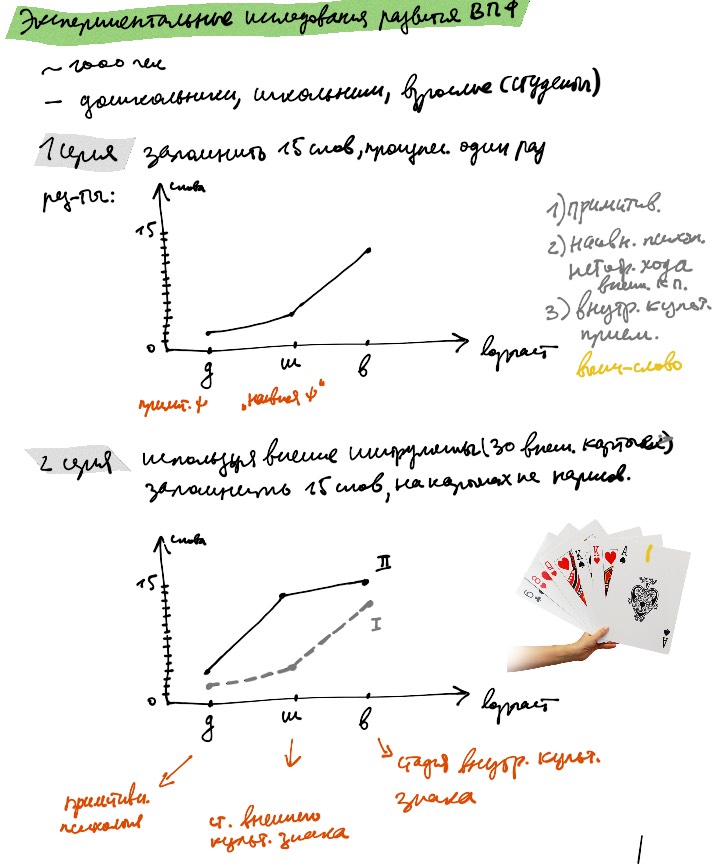 Экспериментальные исследования развития ВПФ
~ 1000 чел
– дошкольники, школьники, взрослые (студенты)
1 серия запомнить 15 слов, прочтен. один раз
рез-ты:
слова
15
0
д ш в
возраст
примит. ψ „наивная ψ"
1) примитив.
2) наивн. психол.
хода
внеш. к п.
3) внутр. культ.
прием.
слово
2 серия используя внешние инструменты (30 внеш. карточек)
запомнить 15 слов, на карточках не нарисов.
слова
15
II
I
0
д ш в
возраст
примитивн.
психология
ст. внешнего
культ. знака
стадия внутр. культ.
знака